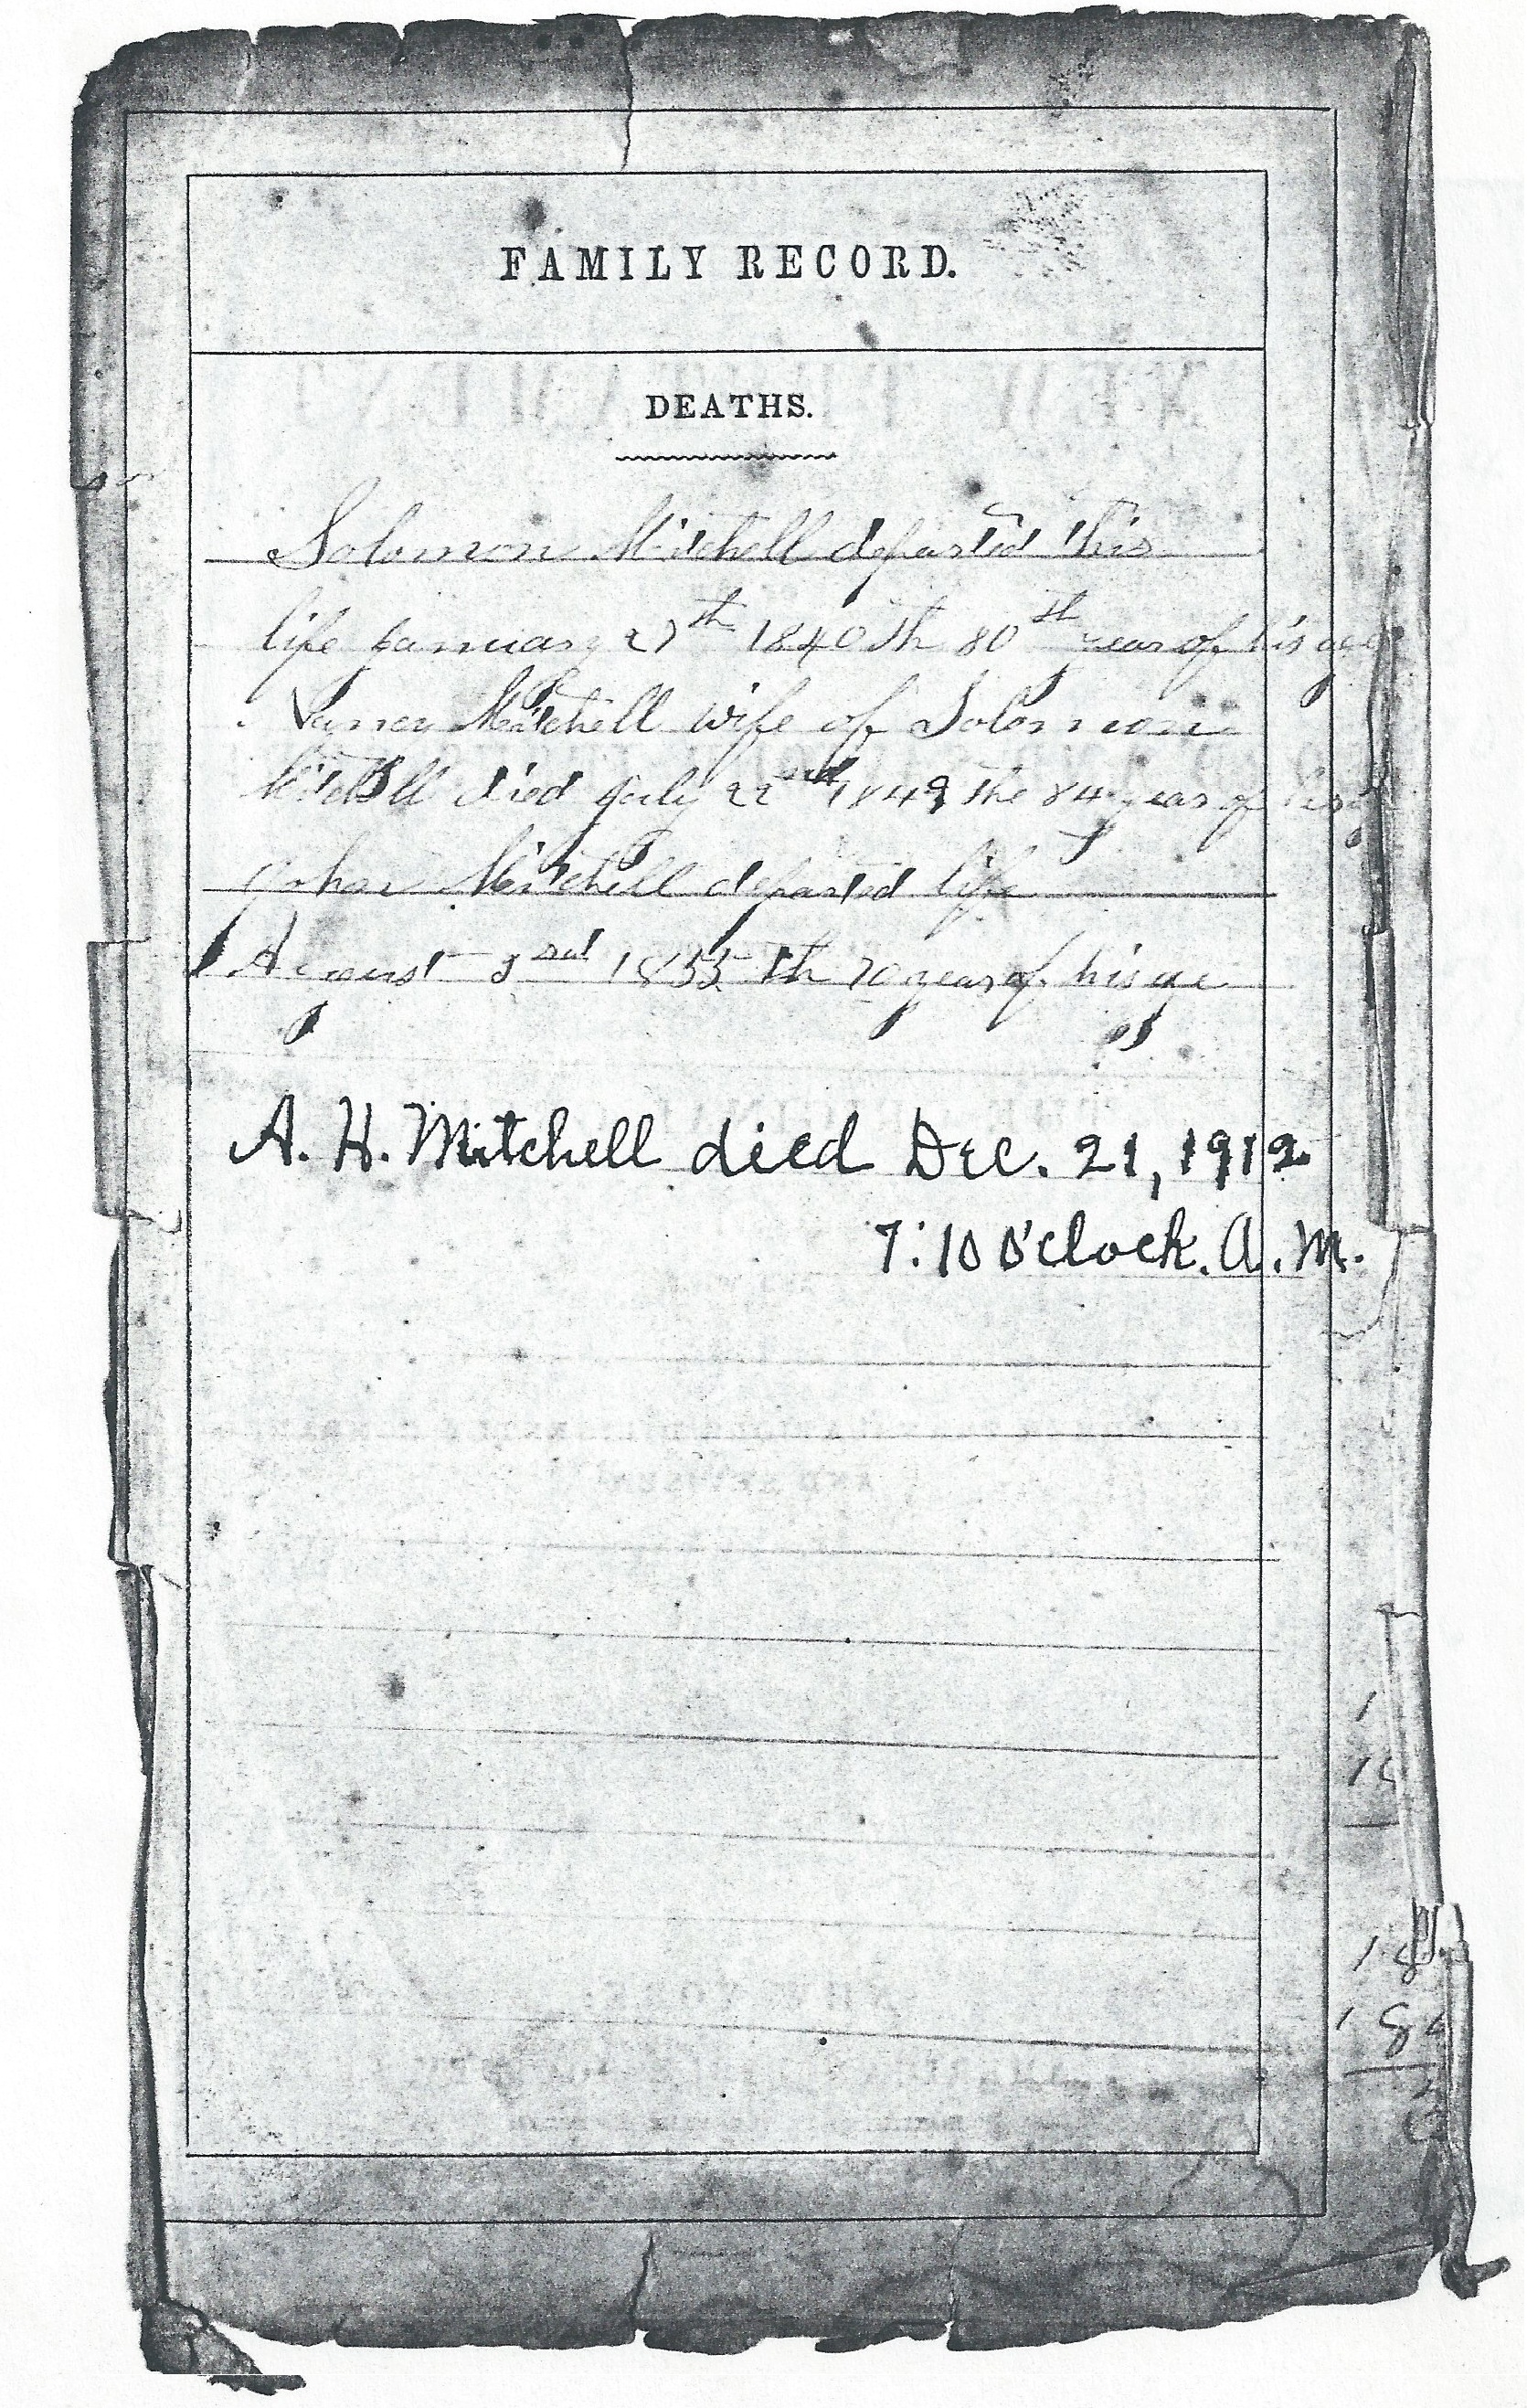 FAMILY RECORD.
DEATHS.
Solomon Mitchell departed this
life January 27th 1840 th 80th year of his age
Nancy Mitchell wife of Solomon
Mitchell died July 22nd 1849 the 84 year of her
John Mitchell departed life
August 3rd 1855 th 70 year of his age
A. H. Mitchell died Dec. 21, 1912
7:10 O'clock. A. M.